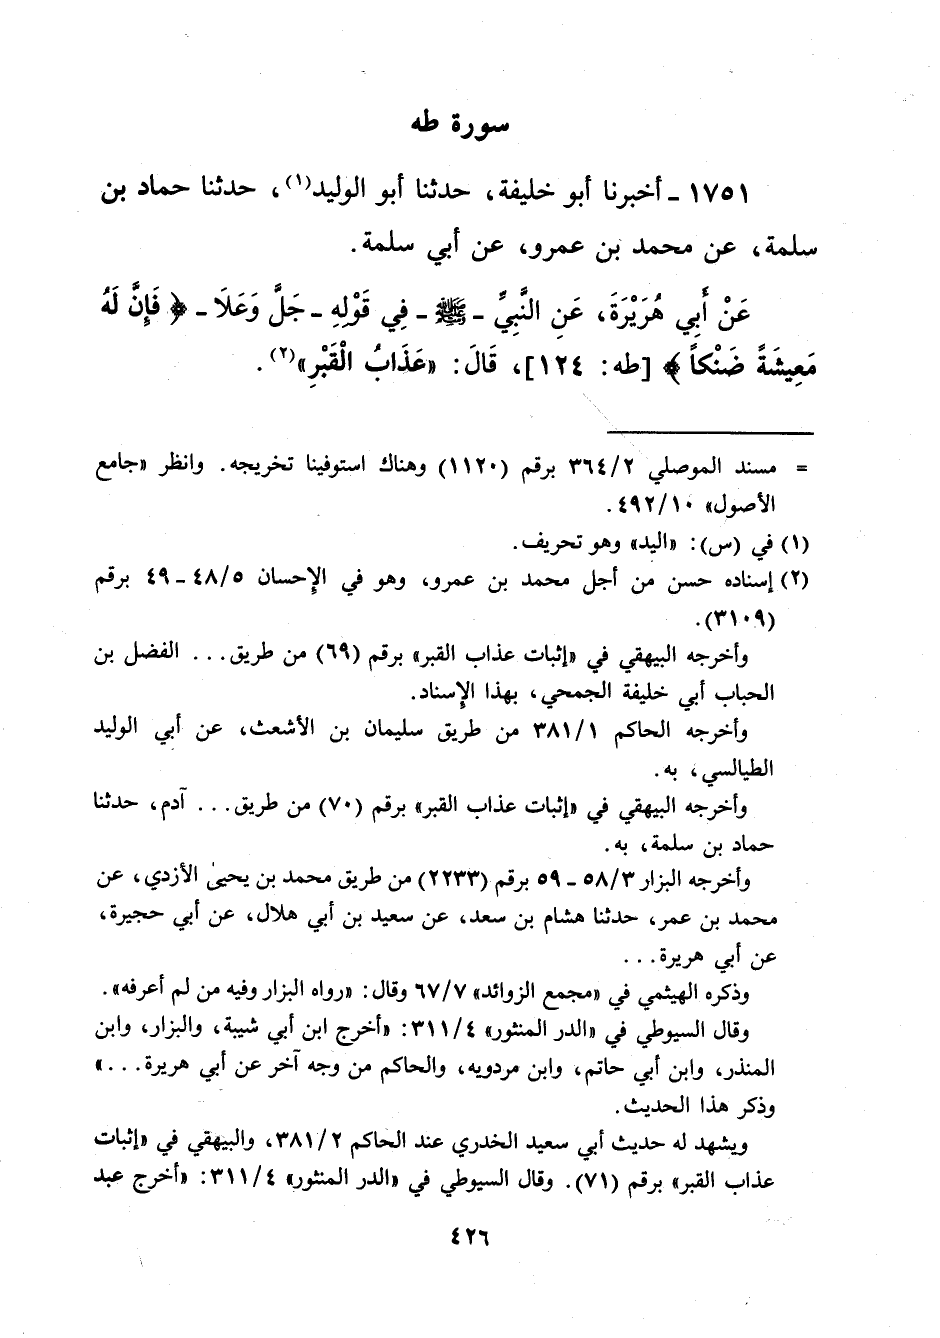 سورة طه
١٧٥١ ـ أخبرنا أبو خليفة، حدثنا أبو الوليد(١)، حدثنا حماد بن
سلمة، عن محمد بن عمرو، عن أبي سلمة.
عَنْ أَبِي هُرَيْرَةَ، عَنِ النَّبِيِّ ـ ﷺ ـ فِي قَوْلِهِ ـ جَلَّ وَعَلَا ـ ﴿ فَإِنَّ لَهُ
مَعِيشَةً ضَنْكاً ﴾ [طه: ١٢٤]، قَالَ: «عَذَابُ الْقَبْرِ»(٢).
= مسند الموصلي ٣٦٤/٢ برقم (١١٢٠) وهناك استوفينا تخريجه. وانظر «جامع
الأصول» ٤٩٢/١٠.
(١) في (س): «اليد» وهو تحريف.
(٢) إسناده حسن من أجل محمد بن عمرو، وهو في الإحسان ٤٨/٥ ـ ٤٩ برقم
(٣١٠٩).
وأخرجه البيهقي في «إثبات عذاب القبر» برقم (٦٩) من طريق... الفضل بن
الحباب أبي خليفة الجمحي، بهذا الإسناد.
وأخرجه الحاكم ٣٨١/١ من طريق سليمان بن الأشعث، عن أبي الوليد
الطيالسي، به.
وأخرجه البيهقي في «إثبات عذاب القبر» برقم (٧٠) من طريق... آدم، حدثنا
حماد بن سلمة، به.
وأخرجه البزار ٥٨/٣ ـ ٥٩ برقم (٢٢٣٣) من طريق محمد بن يحيىٰ الأزدي، عن
محمد بن عمر، حدثنا هشام بن سعد، عن سعيد بن أبي هلال، عن أبي حجيرة،
عن أبي هريرة...
وذكره الهيثمي في «مجمع الزوائد» ٦٧/٧ وقال: «رواه البزار وفيه من لم أعرفه».
وقال السيوطي في «الدر المنثور» ٣١١/٤: «أخرج ابن أبي شيبة، والبزار، وابن
المنذر، وابن أبي حاتم، وابن مردويه، والحاكم من وجه آخر عن أبي هريرة...»
وذكر هذا الحديث.
ويشهد له حديث أبي سعيد الخدري عند الحاكم ٣٨١/٢، والبيهقي في «إثبات
عذاب القبر» برقم (٧١). وقال السيوطي في «الدر المنثور» ٣١١/٤: «أخرج عبد
٤٢٦